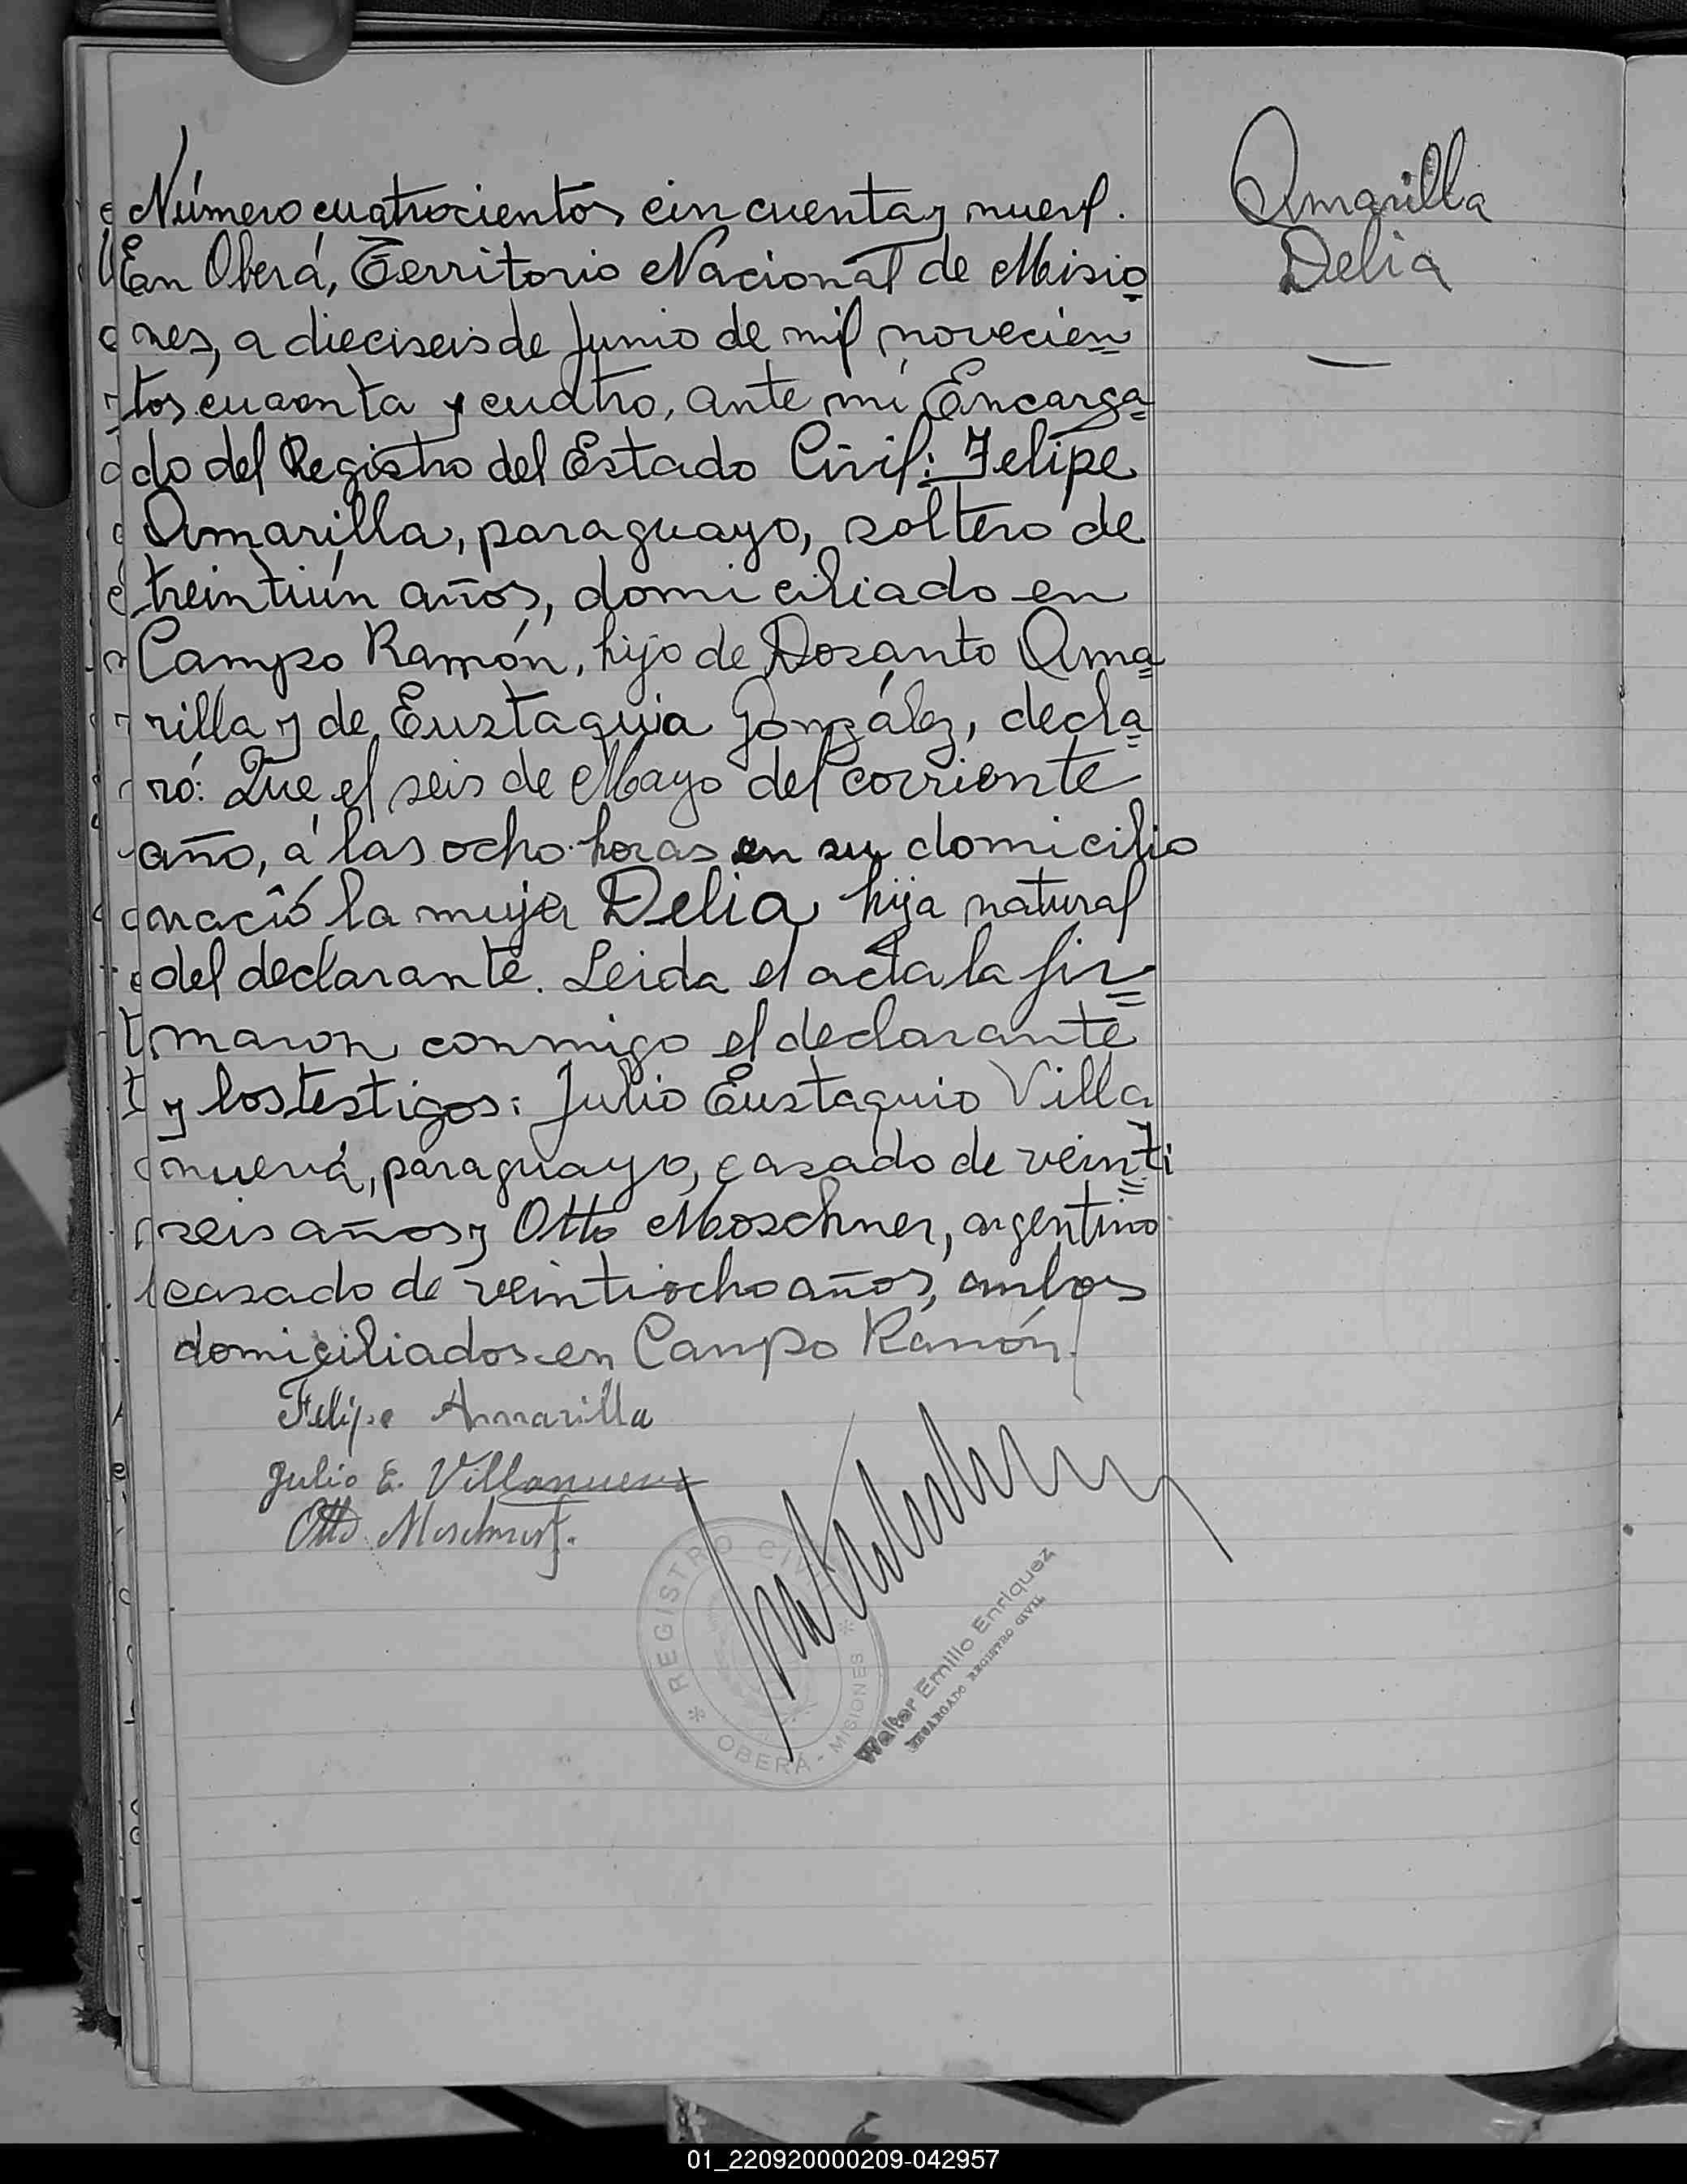 Número cuatrocientos cincuenta y nueve.
En Oberá, Territorio Nacional de Misio
nes, a dieciseis de Junio de mil novecien
tos cuaenta y cuatro, ante mi Encarga
do del Registro del Estado Civil: Felipe
Amarilla, paraguayo, soltero de
treintiún años, domiciliado en
Campo Ramón, hijo de Dosanto Ama
rilla y de Eustaquia González, decla
ró: Que el seis de Mayo del corriente
año, a las ocho horas en su domicilio
nació la mujer Delia hija natural
del declarante. Leida el acta la fir
maron conmigo el declarante
y los testigos: Julio Eustaquio Villa
nueva, paraguayo, casado de veinti
seis años y Otto Moschner, argentino
casado de veintiocho años, ambos
domiciliados en Campo Ramón.
Felipe Amarilla
Julio E. Villanueva
Otto Moschner
Amarilla
Delia
REGISTRO CIVIL
OBERÁ - MISIONES
Walter Emilio Enriquez
ENCARGADO REGISTRO CIVIL
01_220920000209-042957